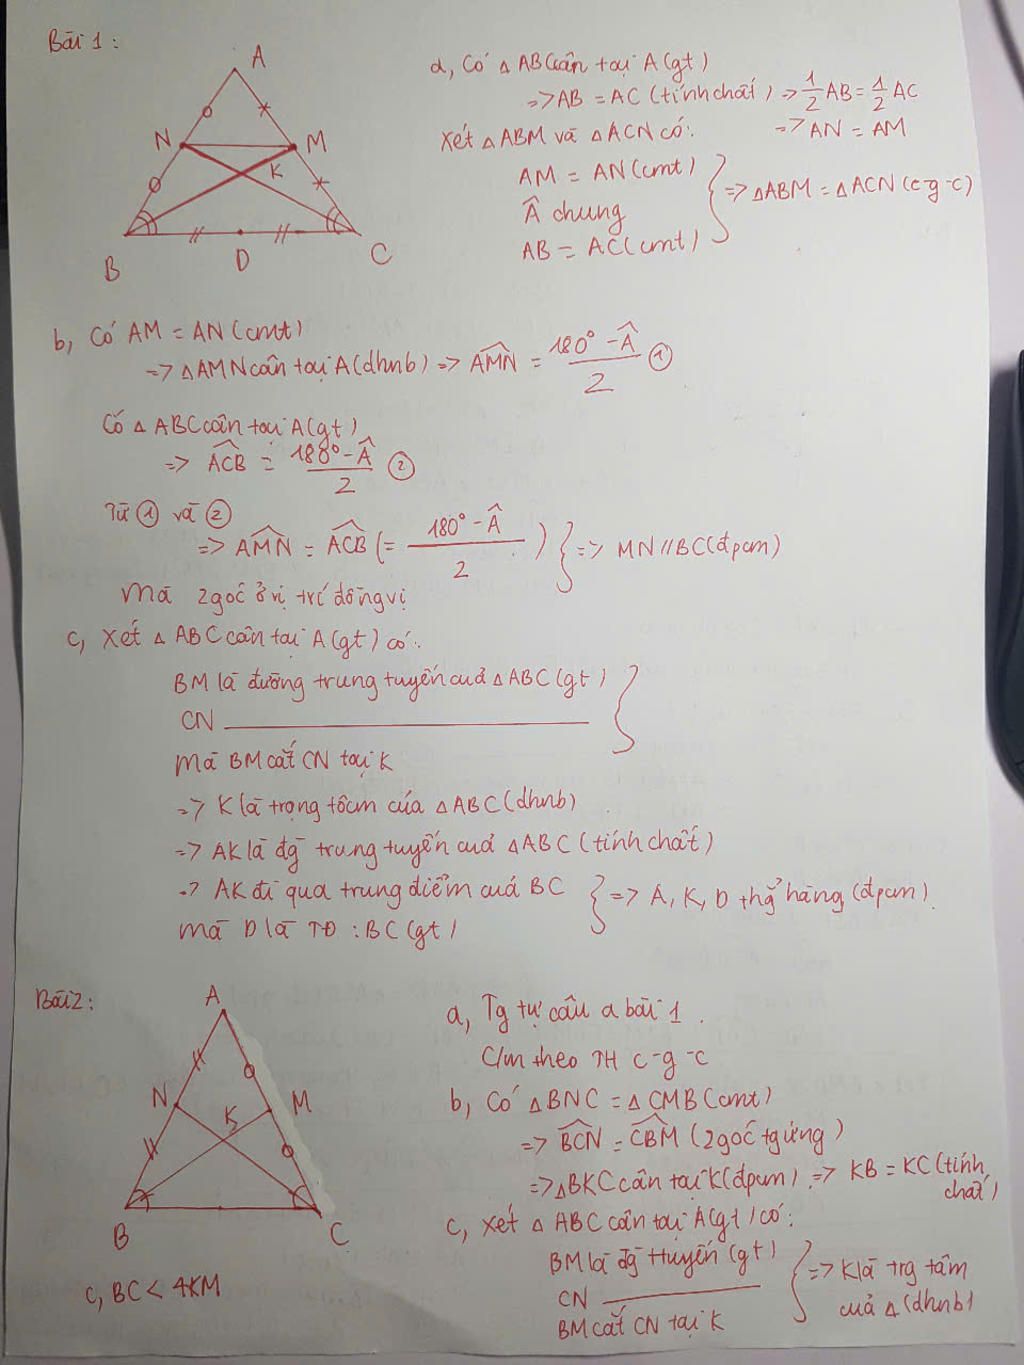 Bài 1:
A
N
M
K
B
D
C
a, Có △ ABC cân tại A(gt)
=> AB = AC (tính chất) => 1/2 AB = 1/2 AC
=> AN = AM
Xét △ ABM và △ ACN có:
AM = AN (cmt)
Â chung
AB = AC (cmt)
=> △ABM = △ACN (c-g-c)
b, Có AM = AN (cmt)
=> △AMN cân tại A (dhnb) => \widehat{AMN} = (180° - Â)/2 ①
Có △ ABC cân tại A(gt)
=> \widehat{ACB} = (180° - Â)/2 ②
Từ ① và ②
=> \widehat{AMN} = \widehat{ACB} (= (180° - Â)/2)
mà 2 góc ở vị trí đồng vị
=> MN // BC (đpcm)
c, Xét △ ABC cân tại A (gt) có:
BM là đường trung tuyến của △ ABC (gt)
CN
mà BM cắt CN tại K
=> K là trọng tâm của △ ABC (dhnb)
=> AK là đg trung tuyến của △ABC (tính chất)
=> AK đi qua trung điểm của BC
mà D là TĐ : BC (gt)
=> A, K, D thg hàng (đpcm)
Bài 2:
A
N
M
K
B
C
c, BC < 4KM
a, Tg tự câu a bài 1.
C/m theo TH c-g-c
b, Có △ BNC = △ CMB (cmt)
=> \widehat{BCN} = \widehat{CBM} (2 góc tg ứng)
=> △BKC cân tại K (đpcm) => KB = KC (tính
chất)
c, Xét △ ABC cân tại A(gt) có:
BM là đg ttuyến (gt)
CN
BM cắt CN tại K
=> K là trg tâm
của △ (dhnb)